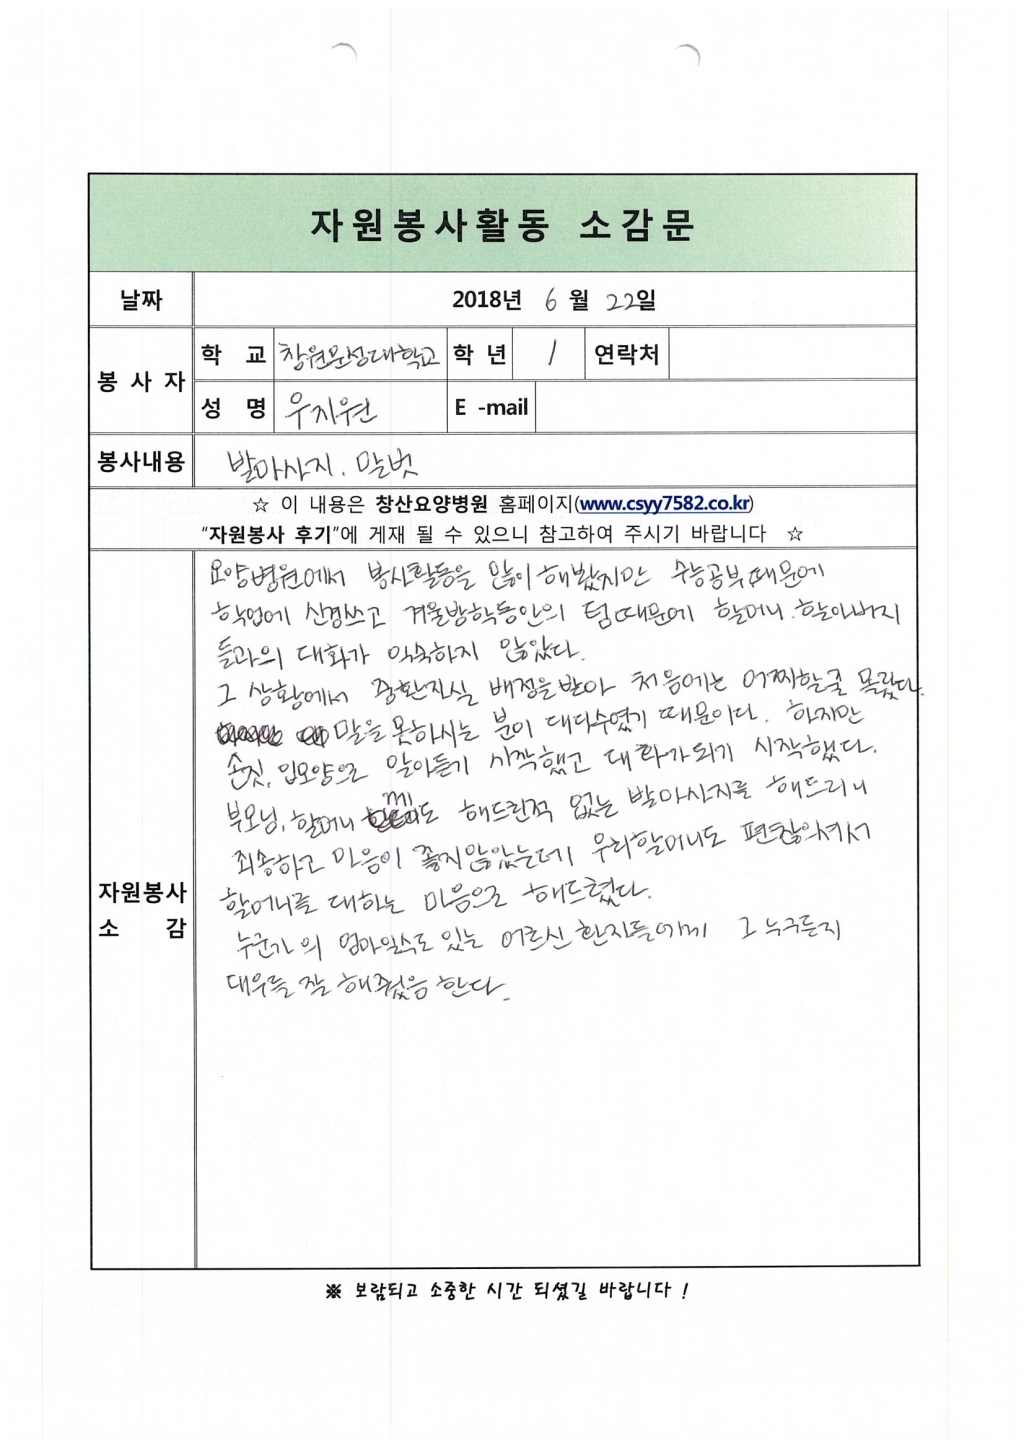 자원봉사활동 소감문
날짜 2018년 6월 22일
봉사자 학교 창원문성대학교 학년 1 연락처
성명 우지원 E-mail
봉사내용 발마사지. 말벗
☆ 이 내용은 창산요양병원 홈페이지(www.csyy7582.co.kr)
"자원봉사 후기"에 게재 될 수 있으니 참고하여 주시기 바랍니다 ☆
자원봉사 소감
요양병원에서 봉사활동을 많이 해봤지만 수능공부때문에
학업에 신경쓰고 겨울방학동안의 텀때문에 할머니. 할아버지
들과의 대화가 익숙하지 않았다.
그 상황에서 중환자실 배정을받아 처음에는 어찌할줄 몰랐다.
말을 못하시는 분이 대다수였기 때문이다. 하지만
손짓, 입모양으로 알아듣기 시작했고 대화가되기 시작했다.
부모님, 할머니께도 해드린적 없는 발마사지를 해드리니
죄송하고 마음이 좋지않았는데 우리할머니도 편찮으셔서
할머니를 대하는 마음으로 해드렸다.
누군가의 엄마일수도 있는 어르신 환자들에게 그 누구든지
대우를 잘 해주었음 한다.
※ 보람되고 소중한 시간 되셨길 바랍니다 !